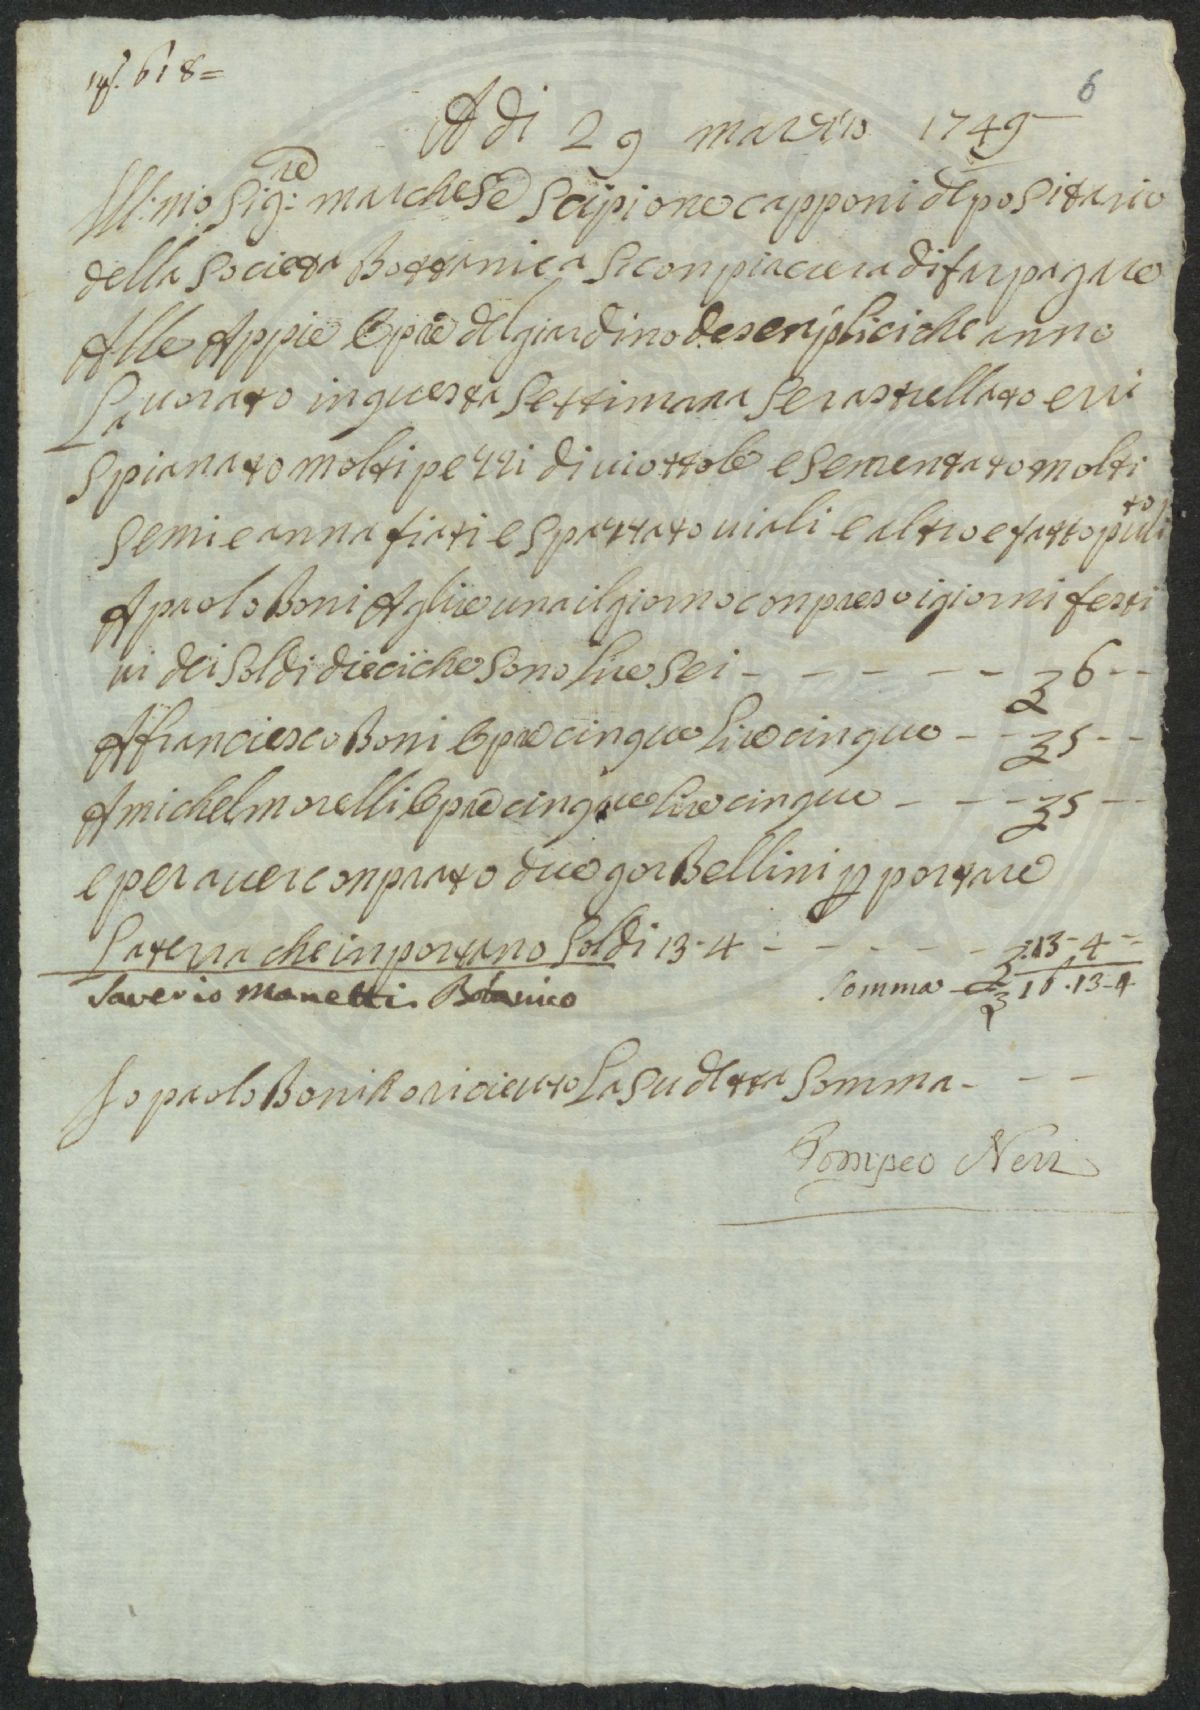 618=
6
A di 29 marzzo 1749
Ill:mo Sig:re marchese Scipione capponi depositario
della Societa Bottanica si conpiacera di far pagare
Alle Appie Opre del giardino de senplici che anno
Lavorato in questa Settimana Se rastrellato e ri
spianato molti pezzi di viottole e sementato molti
semi e annafiati e spazzato viali e altro e fatto pulito
A paolo Boni A lire una il giorno conpreso i giorni festi
vi dei Soldi dieci che sono lire sei - - - - - - 6 - -
A franciesco Boni Opre cinque lire cinque - - 5 - -
A michel morelli Opre cinque lire cinque - - - 5 - -
e per aver conprato due gorBellini p portare
La terra che inportano Soldi 13-4 - - - - - .13-4-
Saverio Manetti Botanico Somma 16.13-4
Io paolo Boni o riceuto La sudetta Somma - - -
Pompeo Neri